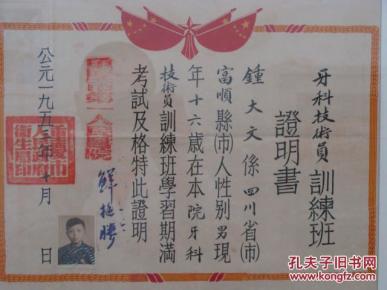 牙科技術員訓練班
證明書
鍾大文係四川省(市)
富順縣(市)人性別男現
年十六歲在本院牙科
技術員訓練班學習期滿
考試及格特此證明
公元一九五三年十月 日
孔夫子旧书网